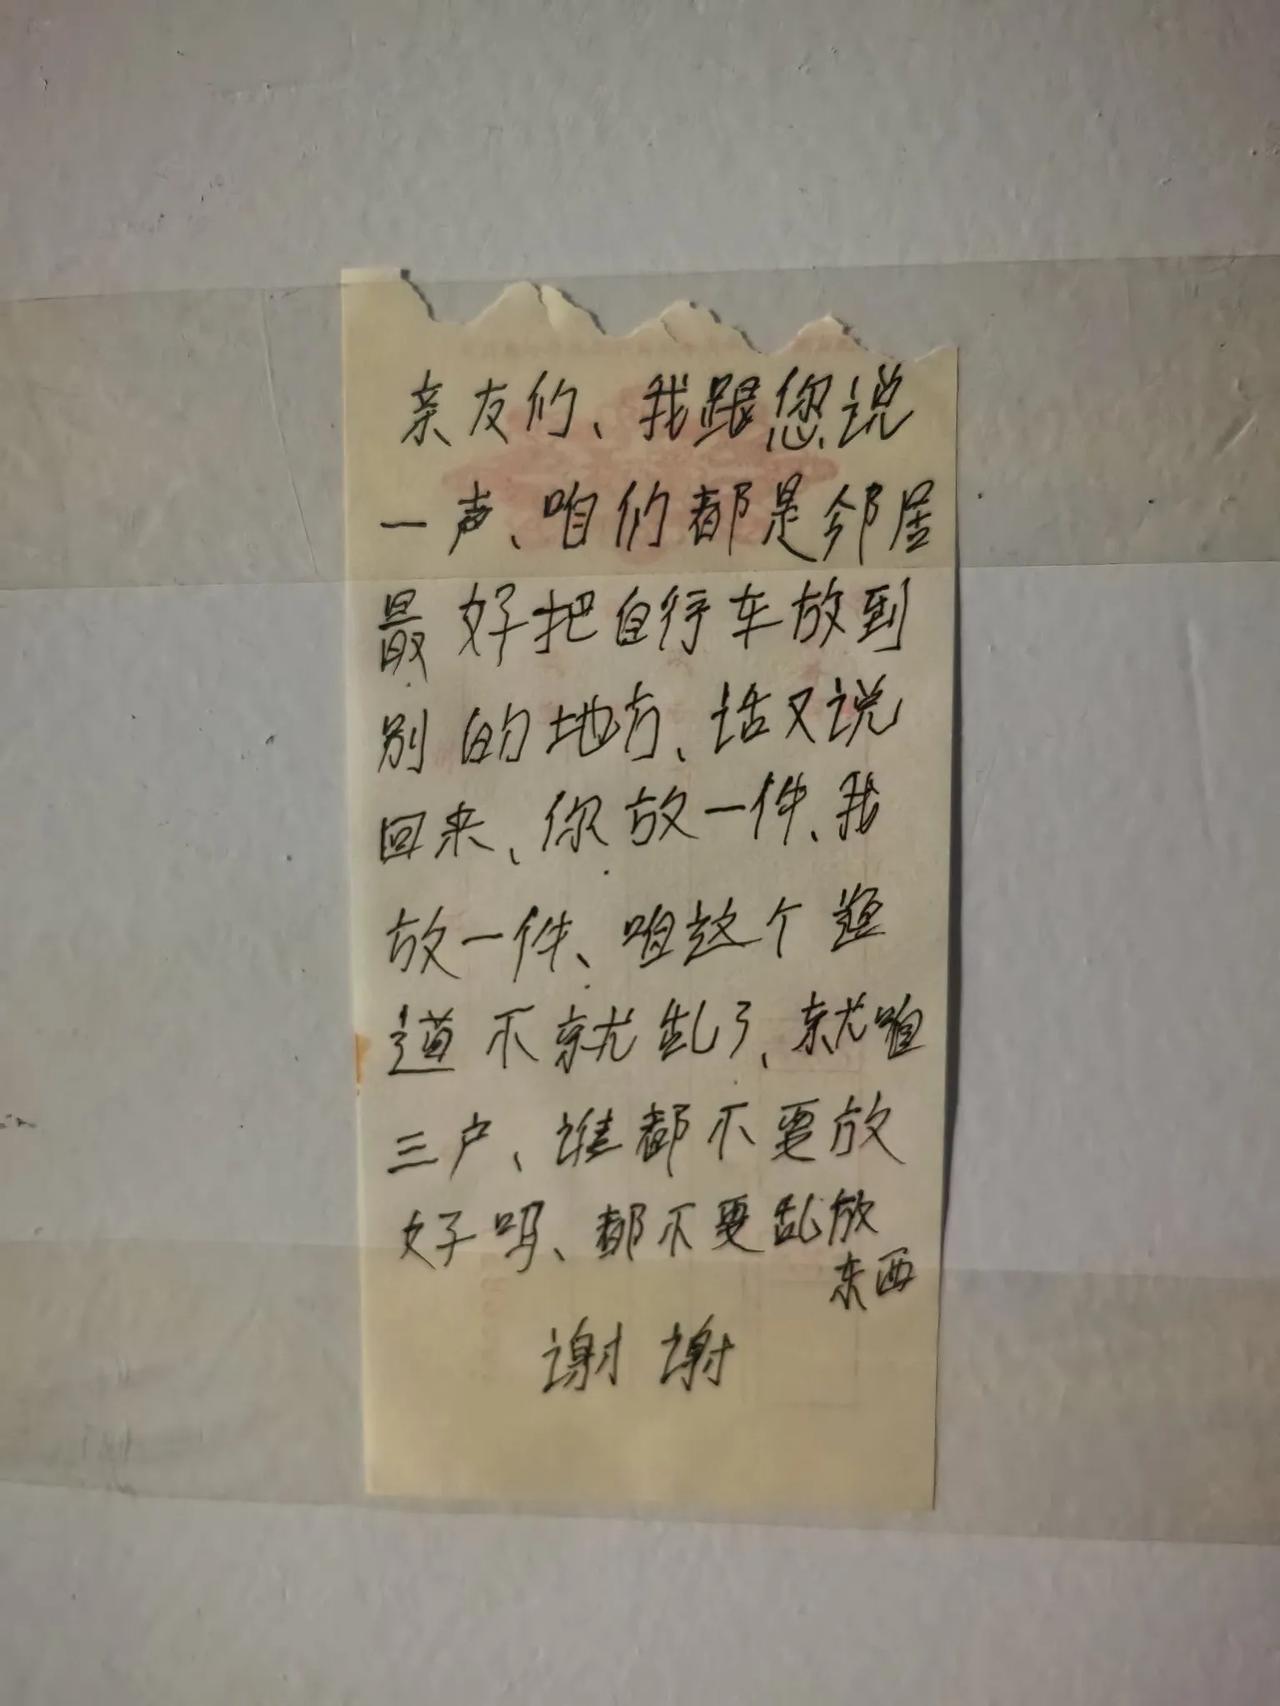 亲友们、我跟您说
一声、咱们都是邻居
最好把自行车放到
别的地方、话又说
回来、你放一件、我
放一件、咱这个
道不就乱了、就咱
三户、谁都不要放
好吗、都不要乱放
东西
谢谢